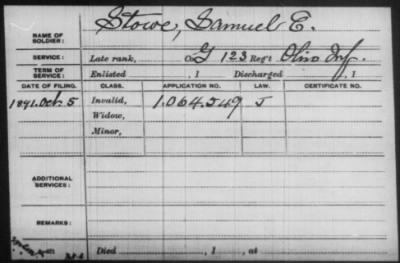 NAME OF SOLDIER: Stowe, Samuel E.
SERVICE: Late rank, G 123 Reg't Ohio Inf.
TERM OF SERVICE: Enlisted , 1 Discharged , 1
DATE OF FILING. CLASS. APPLICATION NO. LAW. CERTIFICATE NO.
1891. Oct. 5 Invalid, 1.064.549 J
Widow,
Minor,
ADDITIONAL SERVICES:
REMARKS:
Died , 1 , at